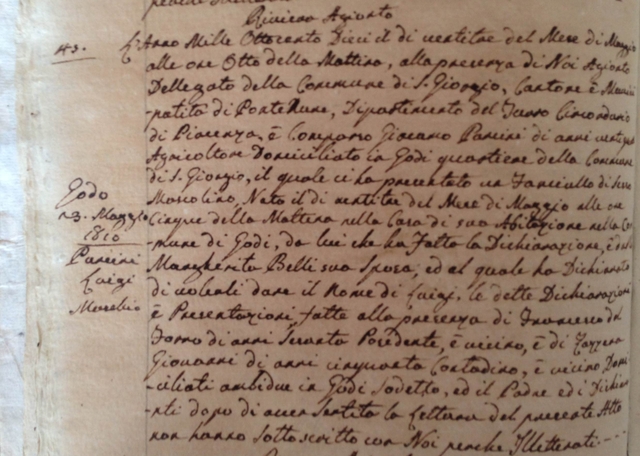 Riviera Agionto
43.
L'Anno Mille Ottocento Dieci il di ventitre del Mese di Maggio
alle ore Otto della Mattina, alla presenza di Noi Agionto
Dellegato della Commune di S. Giorgio, Cantone è Munici
-palità di Ponte Nure, Dipartimento del Circondario
di Piacenza, è Comparso Giacomo di anni
Agricoltore Domiciliato in Godi quartiere della Commune
di S. Giorgio, il quale ci ha presentato un Fanciullo di Sesso
Mascolino, Nato il di ventitre del Mese di Maggio alle ore
Cinque della Mattina nella Casa di sua Abitazione nella Co
-mune di Godi, da lui che ha fatto la Dichiarazione, è da
Margherita Belli sua Sposa, ed al quale ha Dichiarato
di volerli dare il Nome di Luigi, le dette Dichiarazioni
è Presentazioni fatte alla presenza di Francesco
di anni Sesanta Posidente, è vicino, è di
Giovanni di anni cinquanta Contadino, è vicino Domi
-ciliati ambidue in Godi Sodetto, ed il Padre ed i Testimo
-nj dopo di aver Sentito la lettura del presente Atto
non hanno Sottoscritto con Noi perche Illetterati
Godo
23. Maggio
1810
Luigi
Maschio